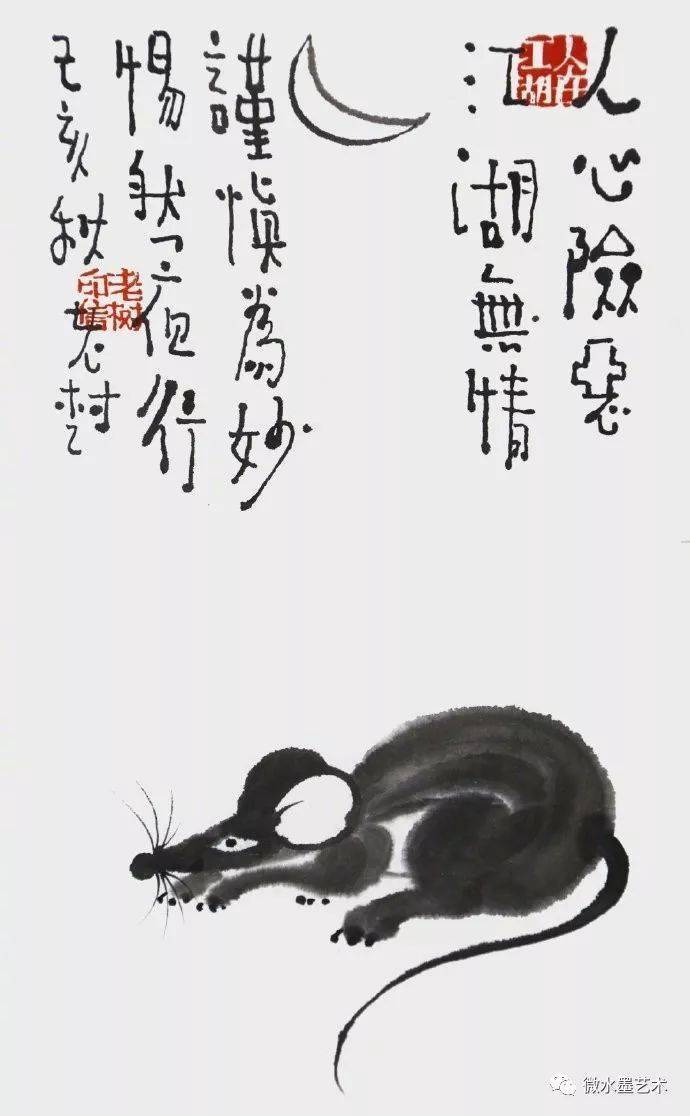 人心險惡
人在江湖
江湖無情
謹慎為妙
惕然行
己亥秋老樹
老树印信
微水墨艺术